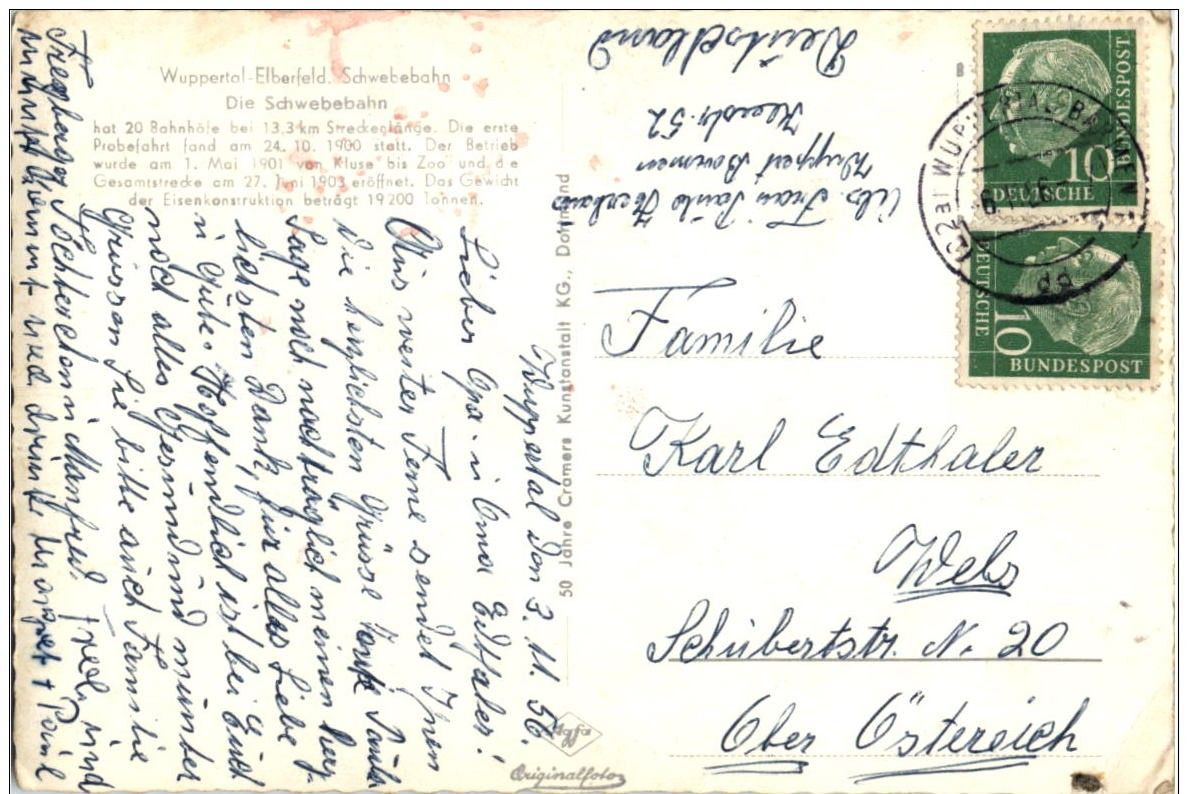 Wuppertal-Elberfeld. Schwebebahn
Die Schwebebahn
hat 20 Bahnhöfe bei 13,3 km Streckenlänge. Die erste
Probefahrt fand am 24. 10. 1900 statt. Der Betrieb
wurde am 1. Mai 1901 von Kluse bis Zoo und die
Gesamtstrecke am 27. Juni 1903 eröffnet. Das Gewicht
der Eisenkonstruktion beträgt 19 200 Tonnen.
Wuppertal den 3. 11. 56.
Lieber Opa. u Oma Edthaler!
Aus weiter Ferne sendet Ihnen
die herzlichsten Grüsse Tante Paula
Sage noch nachträglich meinen herz-
lichsten Dank, für alles Liebe
u Gute. Hoffendlich ist bei Euch
noch alles Gesund und munter
Grüssen Sie bitte auch Familie
Töchterchen u Manfred.
und
50 Jahre Cramers Kunstanstalt KG., Dortmund
Agfa
Originalfoto
Abs. Frau Paula
Wuppert Barmen
52
Deutschland
DEUTSCHE
10
BUNDESPOST
DEUTSCHE
10
BUNDESPOST
(22a) WUPPERTAL-BARMEN
Familie
Karl Edthaler
Wels
Schubertstr. N. 20
Ober Österreich